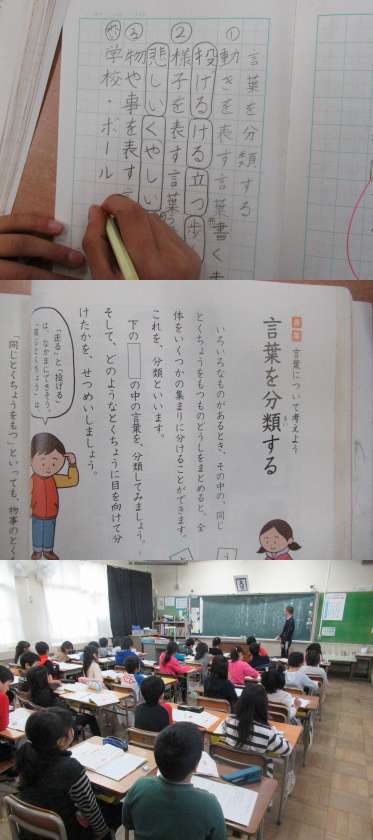 言葉を分類する
①動きを表す言葉
投げる ける 立つ 歩く
②様子を表す言葉
悲しい くやしい
③物や事を表す
学校・ボール
言葉について考えよう
言葉を分類する
いろいろなものがあるとき、その中の、同じ
とくちょうをもつものどうしをまとめると、全
体をいくつかの集まりに分けることができます。
これを、分類といいます。
下の の中の言葉を、分類してみましょう。
そして、どのようなとくちょうに目を向けて分
けたかを、せつめいしましょう。
「走る」と「投げる」
は、なかまにできそう。
「同じとくちょう」は、
「同じとくちょうをもつ」といっても、物事のとく